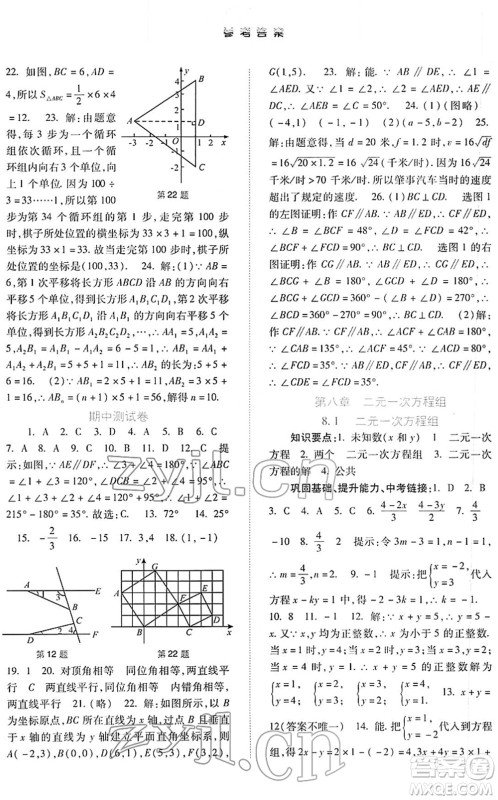 参考答案
22. 如图,BC=6,AD=
4,所以S△ABC=1/2×6×4
=12. 23. 解:由题意
得,每3步为一个循环
组依次循环,且一个循环
组内向右3个单位,向上
1个单位,因为100÷
3=33……1,所以第100
步为第34个循环组的第1步,走完第100
步时,棋子所处位置的横坐标是33×3+1
=100,纵坐标为33×1=33.故当走完第100步时,棋子所
处位置的坐标是(100,33). 24. 解:(1)∵AB
=6,第1次平移将长方形ABCD沿AB的方向向右
平移5个单位,得到长方形A1B1C1D1,第2次平移
将长方形A1B1C1D1沿A1B1的方向向右平移5个单
位,得到长方形A2B2C2D2,…,∴AA1=5,A1A2=
5,A2B1=A1B1-A1A2=6-5=1,∴AB1=AA1+
A1A2+A2B1=5+5+1=11,AB2=5+5+5+1
=16. (2)由(1)得ABn=(n+1)×5+1=56,解
得n=10.
第22题
期中测试卷
1. A 2. A 3. C 4. B 5. C 6. C
7. A 8. D 9. C 10. B 11. A 12. C 提
示:如图,∵AE∥DF,∴∠3+∠4=180°,∵∠ABC
=∠2+∠4=90°,∠1+∠3=125°,∴∠1+∠2=
215°-180°=35°.故选:C. 13. 72° 14. 25°
15. -2/3 16. 4/3 17. 2 18. (1,-1)
第12题
第22题
19. 1 20. 对顶角相等 同位角相等,两直线平
行 CFD 两直线平行 内错角相等,两直线平
行 21. (略) 22. 解:如图所示,以B
为坐标原点,BC所在的直线为x轴,过点B且垂直
于x轴的直线为y轴建立平面直角坐标系,则
A(-2,3),B(0,0),D(6,1),E(5,3),F(3,2),
G(1,5). 23. 解:能.∵AB∥DE,∴∠1=
∠AED.∵∠1=∠ACB,∴∠AED=∠ACB,
∴∠DAE=∠CAE. 24. (1)(图略)
(-4,1) (-1,-1) (2)(a-5,b-2) 25.
解:由题意得,当d=20,f=1.2时,v=16√df
=16√20×1.2=16√24(千米/时).∵16√24(千米/
时)>80(千米/时),所以肇事汽车当时的速度
超出了规定的速度. 26. (1)BC⊥CD. 选图1
的左图证明:如图,作CF∥AB.∵AB∥ED,∴CF
∥ED.∴∠BCF=∠B=48°,∠DCF=∠D=
42°.∴∠BCD=90°,∴BC⊥CD. 选图1的右
图证明:作CG∥AB.∵AB∥ED,∴CG∥ED.∴
∠BCG+∠B=180°,∠GCD+∠D=180°.∴
∠BCG+∠GCD=360°-(∠B+∠D)=270°.∴
∠BCD=360°-270°=90°.∴BC⊥CD. (2)解:
作CF∥AB.∴∠A+∠ACF=180°.∴∠ACF=
60°.∵AB∥ED,∴CF∥ED,∴∠CDE=∠FCD.
∴∠FCD=35°.∴∠CDE=35°.
第八章 二元一次方程组
8.1 二元一次方程组
知识要点:1. 未知数(x和y) 1 二元一次
方程 2. 两个 二元一次方程组 3. 二元一次方
程的解 4. 公共
巩固基础、提升能力、中考链接:1. D 2. B
3. C 4. C 5. A 6. A 7. (4-2x)/3 (4-3y)/2 8.
-10 9. 4/3 4/3 提示:令3m-3=1,n-1=1,所
以m=4/3,n=2.11. -1 提示:把{x=-2,y=-1代入
方程x-ky=1中,得-2+k=1,则k=3.
10. 8 11. -16 12. 解:能.x+y=5,则y=5-
x.又∵x,y均为正整数,∴x为小于5的正整数.
当x=1时,y=4;当x=2时,y=3;当x=3,y=2;
当x=4时,y=1.∴x+y=5的正整数解为
{x=1, y=4, {x=2, y=3, {x=3, y=2, {x=4, y=1. 13. x+y=
12(答案不唯一) 14. 解:能.把{x=1, y=-2,代入到方程
组,得2x-y=2×1-(-2)=4,3x+4y=3×1+